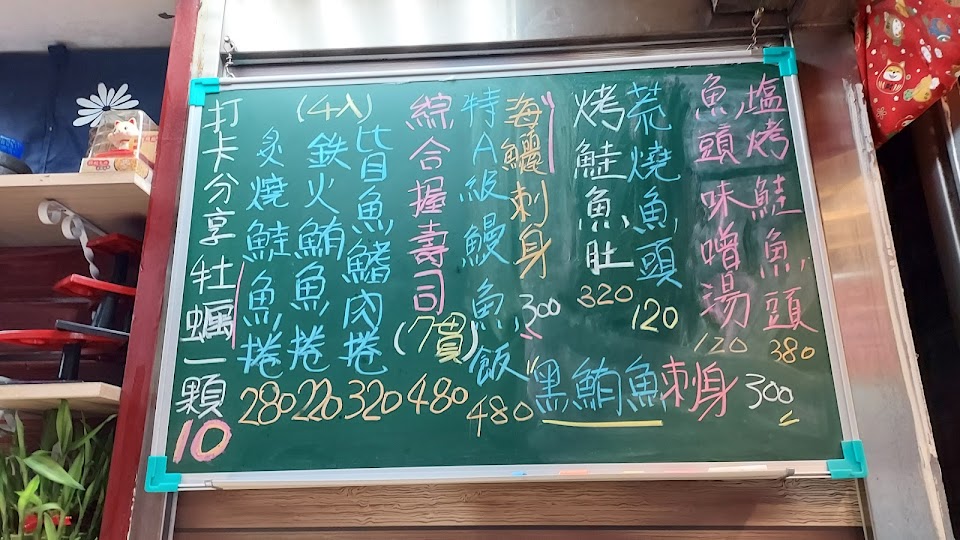 塩烤鮭魚頭 380
魚頭味噌湯 120
荒燒魚頭 120
烤鮭魚肚 320
黑鮪魚刺身 300
海鱺刺身 300
特A級鰻魚飯 480
綜合握壽司(7貫) 480
比目魚鰭肉捲 320
(4入)
鉄火鮪魚捲 220
炙燒鮭魚捲 280
打卡分享牡蠣一顆10